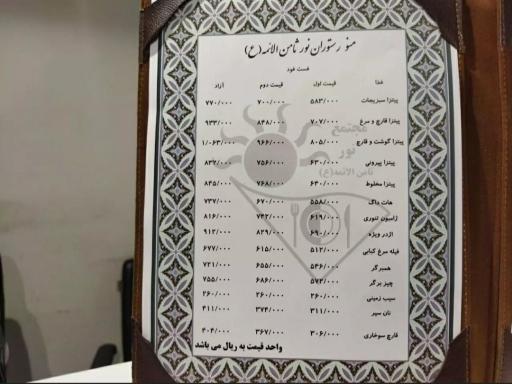 منو رستوران نور ثامن الائمه(ع)
فست فود
غذا قیمت اول قیمت دوم آزاد
پیتزا سبزیجات ۵۸۳/۰۰۰ ۷۰۰/۰۰۰ ۷۷۰/۰۰۰
پیتزا قارچ و مرغ ۷۰۷/۰۰۰ ۸۴۸/۰۰۰ ۹۳۳/۰۰۰
پیتزا گوشت و قارچ ۸۰۵/۰۰۰ ۹۶۶/۰۰۰ ۱/۰۶۳/۰۰۰
پیتزا پپرونی ۶۳۰/۰۰۰ ۷۵۶/۰۰۰ ۸۳۲/۰۰۰
پیتزا مخلوط ۶۴۰/۰۰۰ ۷۶۸/۰۰۰ ۸۴۵/۰۰۰
هات داگ ۵۵۸/۰۰۰ ۶۷۰/۰۰۰ ۷۳۷/۰۰۰
ژامبون تنوری ۶۱۹/۰۰۰ ۷۴۲/۰۰۰ ۸۱۶/۰۰۰
اژدر ویژه ۶۹۰/۰۰۰ ۸۲۹/۰۰۰ ۹۱۲/۰۰۰
فیله مرغ کبابی ۵۱۲/۰۰۰ ۶۱۵/۰۰۰ ۶۷۷/۰۰۰
همبرگر ۵۴۶/۰۰۰ ۶۵۵/۰۰۰ ۷۲۱/۰۰۰
چیز برگر ۵۷۲/۰۰۰ ۶۸۶/۰۰۰ ۷۵۵/۰۰۰
سیب زمینی ۲۶۰/۰۰۰ ۲۶۰/۰۰۰ ۲۶۰/۰۰۰
نان سیر ۳۱۱/۰۰۰ ۳۷۴/۰۰۰ ۴۱۱/۰۰۰
قارچ سوخاری ۳۰۶/۰۰۰ ۳۶۷/۰۰۰ ۴۰۴/۰۰۰
واحد قیمت به ریال می باشد
مجتمع
نور
ثامن الائمه(ع)